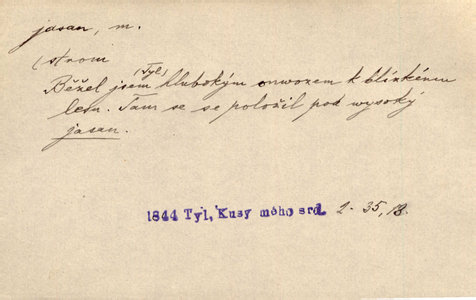 jasan, m.
(strom
(Tyl)
Běžel jsem hlubokým ouvozem k blízkému
lesu. Tam se se položil pod wysoký
jasan.
1844 Tyl, Kusy mého srd. 2-35, 13.